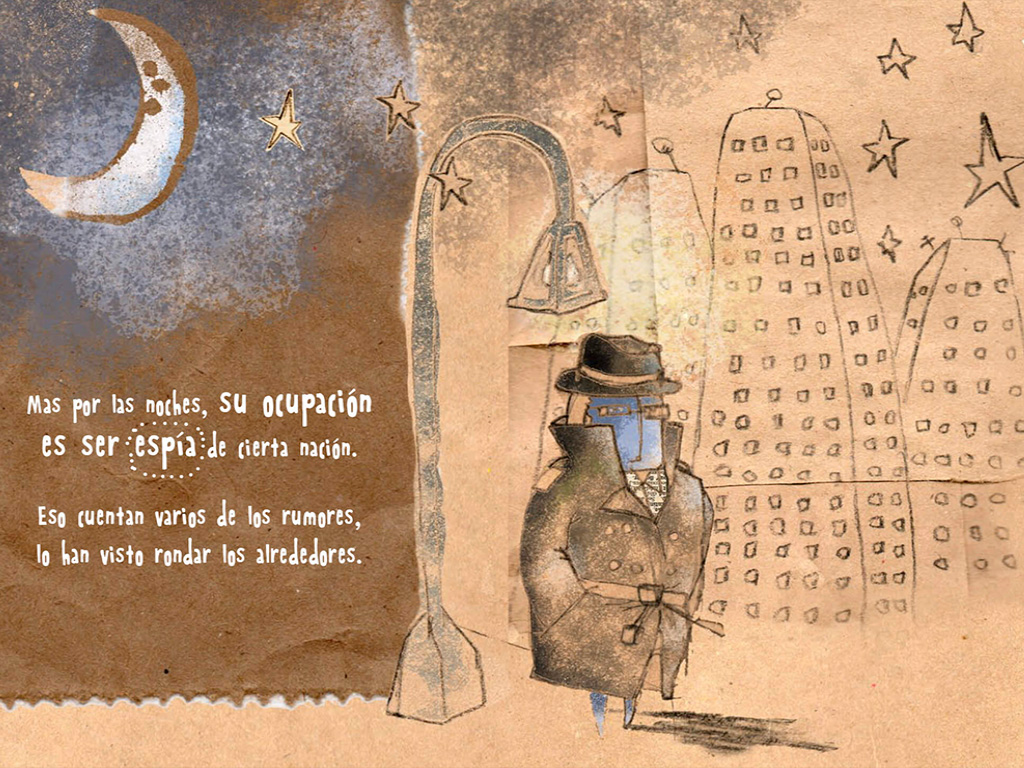 Mas por las noches, su ocupación
es ser espía de cierta nación.
Eso cuentan varios de los rumores,
lo han visto rondar los alrededores.